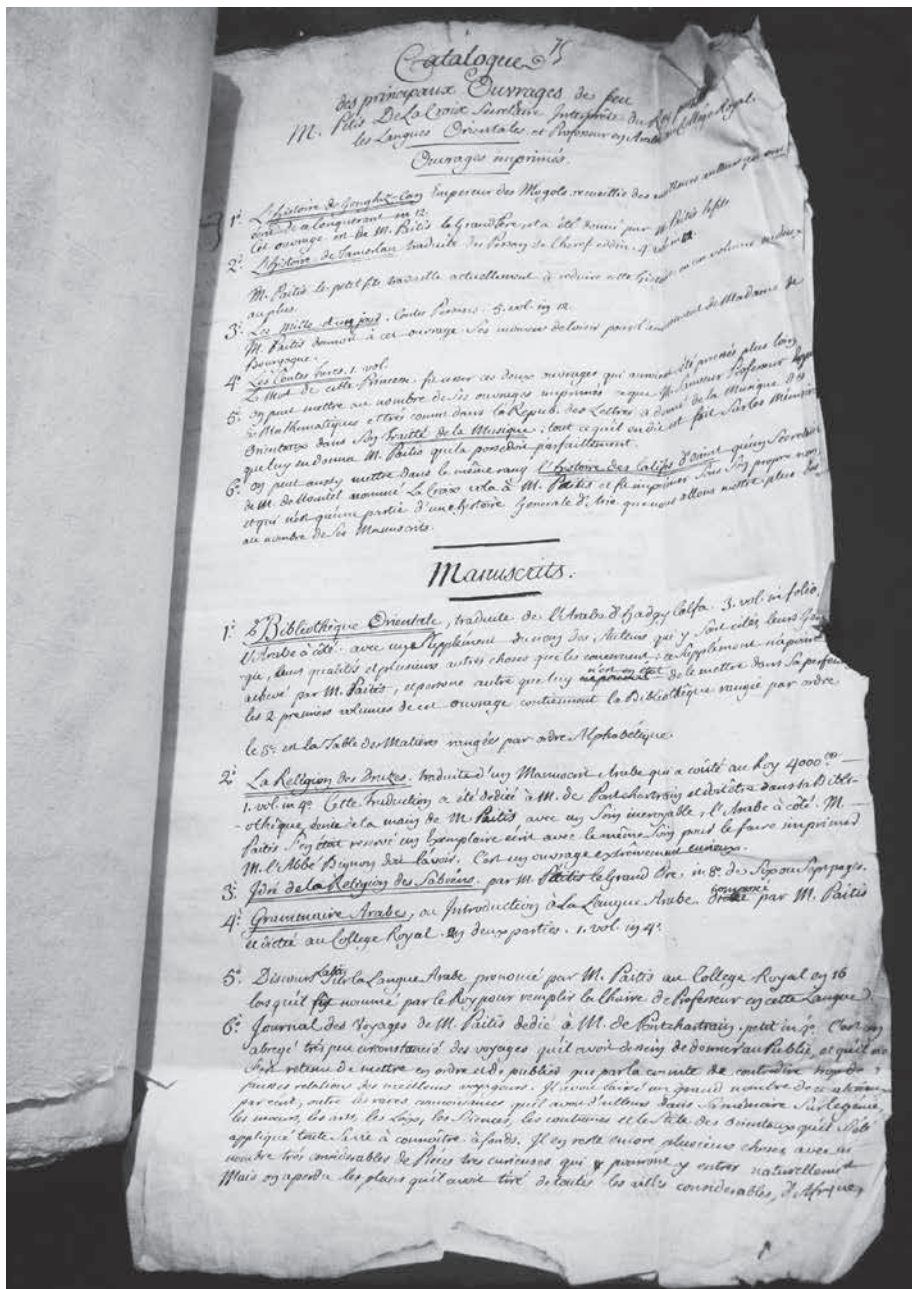 Catalogue
des principaux Ouvrages de feu
M. Petis De La Croix Secretaire Interprête du Roy pour
les Langues Orientales et Professeur en Arabe au College Royal.
Ouvrages imprimés.
1º. L'histoire de Genghiz-Can Empereur des Mogols recueillie des meilleurs auteurs
de ce Conquerant in 12.
Cet ouvrage est de M. Pétis le Grand Pere et a été donné par M. Pétis le fils
2º. L'histoire de Tamerlan traduite du Persan de Cheref eddin. 4 vol. in 12
M. Paitis le petit fils travaille actuellement à reduire cette histoire en un volume ou deux
au plus.
3º. Les mille et un jour. Contes Persans. 5. vol. in 12.
M. Paitis donnoit à cet ouvrage ses momens de loisir pour l'amusement de Madame de
Bourgogne.
4º. Les Contes turcs. 1. vol.
La Mort de cette Princesse fit cesser ces deux ouvrages qui auroient été poussés plus loin
5º. On peut mettre au nombre de ses ouvrages imprimés ce que M. Sauveur Professeur Royal
en Mathematiques et très connu dans la Repub. des Lettres a donné de la Musique des
Orientaux dans son Traitté de la Musique; tout ce qu'il en dit est fait sur les Memoires
que luy en donna M. Paitis qui la possedoit parfaittement.
6º. On peut aussy mettre dans le même rang l'histoire des Califs qu'un Secretaire
de M. nommé La Croix vola à M. Paitis et fit imprimer sous son propre nom
et qui n'est qu'une partie d'une histoire Generale d'Asie que nous allons mettre plus bas
au nombre de ses Manuscrits.
Manuscrits.
1º. Bibliothèque Orientale, traduite de l'Arabe d'hadgy Calfa. 3. vol. in folio,
l'Arabe à côté. avec un Supplément du nom des Auteurs qui y sont cités, leurs
leurs qualités et plusieurs autres choses qui les concernent: ce Supplément n'a point
achevé par M. Paitis, et personne autre que luy n'est en état de le mettre dans sa perfection
les 2 premiers volumes de cet ouvrage contiennent la Bibliothèque rangée par ordre
le 3e. est la Table des Matières rangées par ordre Alphabétique.
2º. La Religion des Druzes. traduite d'un Manuscrit Arabe qui a coûté au Roy 4000
1. vol. in 4º. Cette Traduction a été dediée à M. de Pontchartrain et doit être dans sa Bibli-
-othèque, écrite de la main de M. Paitis avec un soin incroyable, l'Arabe à côté. M.
Paitis s'en étoit reservé un Exemplaire écrit avec le même soin pour le faire imprimer
M. l'Abbé Bignon doit l'avoir. C'est un ouvrage extrêmement curieux.
3º. Idée de la Religion des Sabéens. par M. Paitis le Grand Pere, in 8º de Sept ou pages.
4º. Grammaire Arabe, ou Introduction à la Langue Arabe. composée par M. Paitis
et dictée au College Royal. en deux parties. 1. vol. in 4º.
5º. Discours Latin sur la Langue Arabe prononcé par M. Paitis au College Royal en 16
lorsqu'il fut nommé par le Roy pour remplir la Chaire de Professeur en cette Langue.
6º. Journal des Voyages de M. Paitis dedié à M. de Pontchartrain. petit in 4º. C'est un
abregé très peu circonstancié des voyages qu'il avoit dessein de donner au Public, et qu'il ne
s'est retenu de mettre en ordre et de publier que par la crainte de contredire trop de
fausses relations des meilleurs voyageurs. Il avoit laissé un grand nombre de
par écrit, outre les rares connoissances qu'il avoit d'ailleurs dans sa mémoire sur le génie,
les moeurs, les arts, les Loix, les Siences, les coutumes et le stile des Orientaux qu'il s'étoit
appliqué toute sa vie à connoître à fonds. Il en reste encore plusieurs choses avec un
nombre très considerables de Pièces tres curieuses qui pouroient y entrer naturellement
Mais on a perdu les plans qu'il avoit tiré de toutes les villes considerables, d'Afrique,